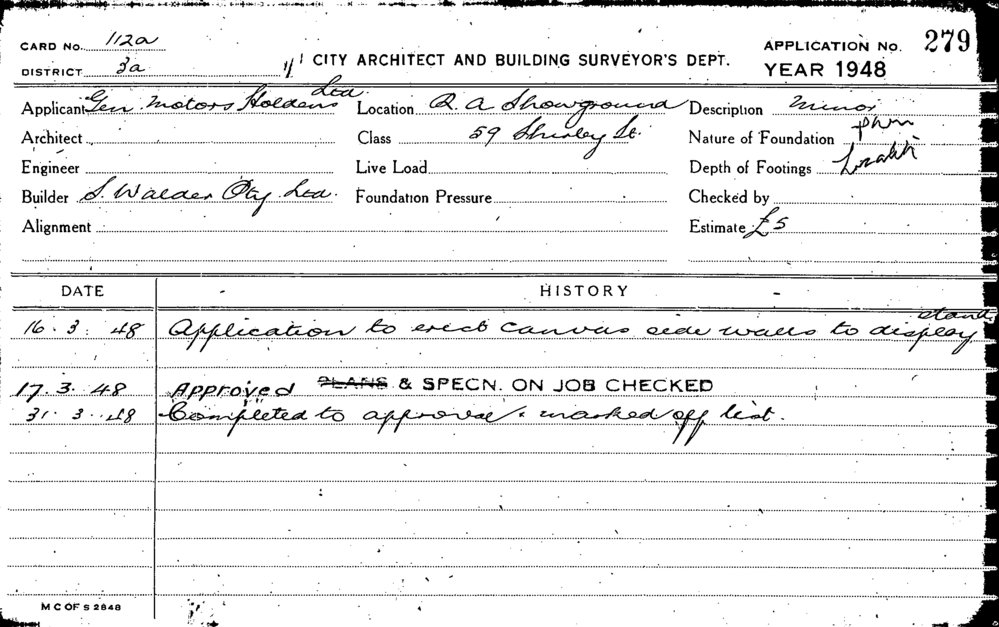 CARD No. 112a
DISTRICT 3a
CITY ARCHITECT AND BUILDING SURVEYOR'S DEPT.
APPLICATION No. 279
YEAR 1948
Applicant Gen. Motors Holdens Ltd. Location R. A Showground Description Minor
Architect Class 59 Shirley St. Nature of Foundation
Engineer Live Load Depth of Footings
Builder S. Walder Pty Ltd. Foundation Pressure Checked by
Alignment Estimate £5
DATE HISTORY
16. 3. 48 Application to erect canvas side walls to display stand.
17. 3. 48 Approved PLANS & SPECN. ON JOB CHECKED
31. 3. 48 Completed to approval & marked off list.
M C OF S 2848